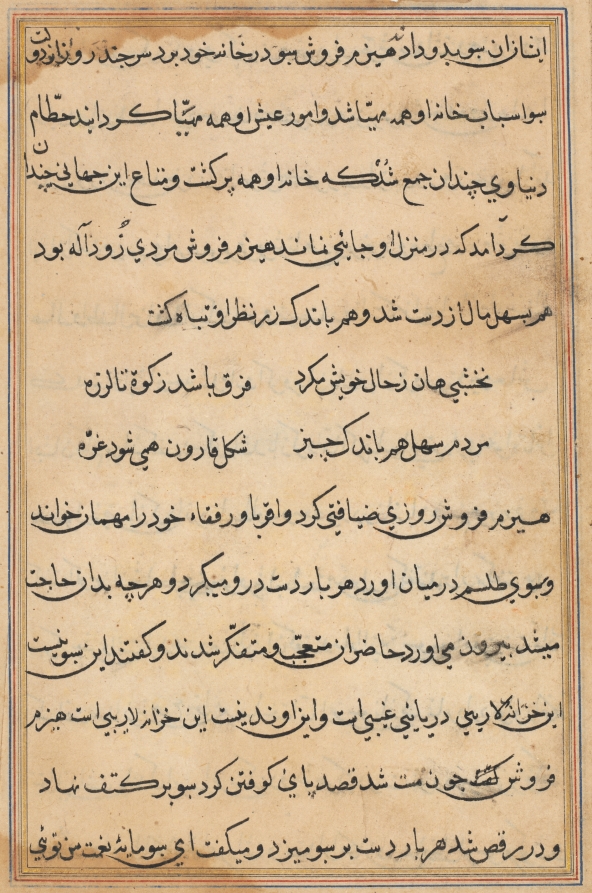 ایشان آن سبو بدو دادند هیزم فروش سبو در خانه خود برد در چند روز از دولت
سبو اسباب خانه او همه مهیّا شد و امور عیش او همه مهیّا کردانید حطّام
دنیاوی چندان جمع شُد که خانه او همه پر کشت و متاع این جهانی چندان
کرد آمد که در منزل او جائی نماند هیزم فروش مردی زُود آله بود
هم بسهل مال از دست شد و هم باندک زر نظر او تباه کشت
نخشبی هان ز حال خویش مکرد فرق باشد ز کوة تا لرزه
مردم سهل هم باندک چیز شکل قارون همی شود غرّه
هیزم فروش روزی ضیافتی کرد و اقربا و رفقاء خود را مهمان خواند
و سبوی طلسم در میان اورد هر بار دست درو میکرد و هر چه بدان حاجت
میشد بیرون می اورد حاضران متعجّب و متفکّر شدند و کفتند این سبو نیست
این خزانۀ لاریبی دریائی غیبی است و این اوند نیست این خزانه لاریبی است هیزم
فروش چون مست شد قصد پای کوفتن کرد سبو بر کتف نهاد
و در رقص شد هر بار دست بر سبو میزد و میکفت ای سبو مایۀ نعمت من توئی